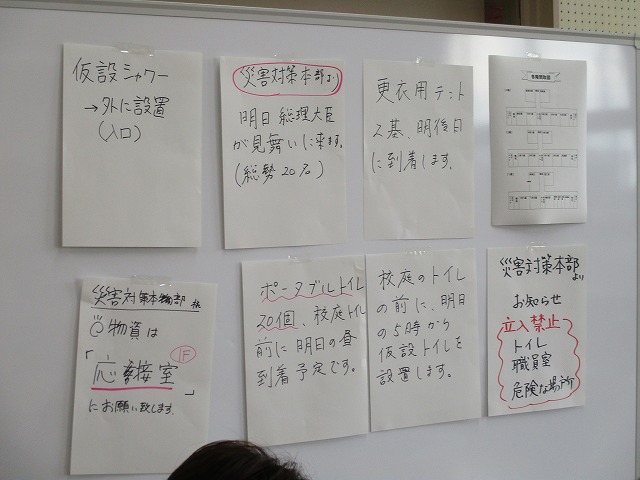 仮設シャワー
→外に設置
(入口)
災害対策本部より
明日 総理大臣
が見舞いに来ます。
(総勢20名)
更衣用テント
2基、明後日
に到着します。
災害対策本部 様
物資は
「応接室」
1F
にお願い致します
ポータブルトイレ
20個、校庭トイレ
前に明日の昼
到着予定です。
校庭のトイレ
の前に、明日
の5時から
仮設トイレを
設置します。
災害対策本部
より
お知らせ
立入禁止
トイレ
職員室
危険な場所